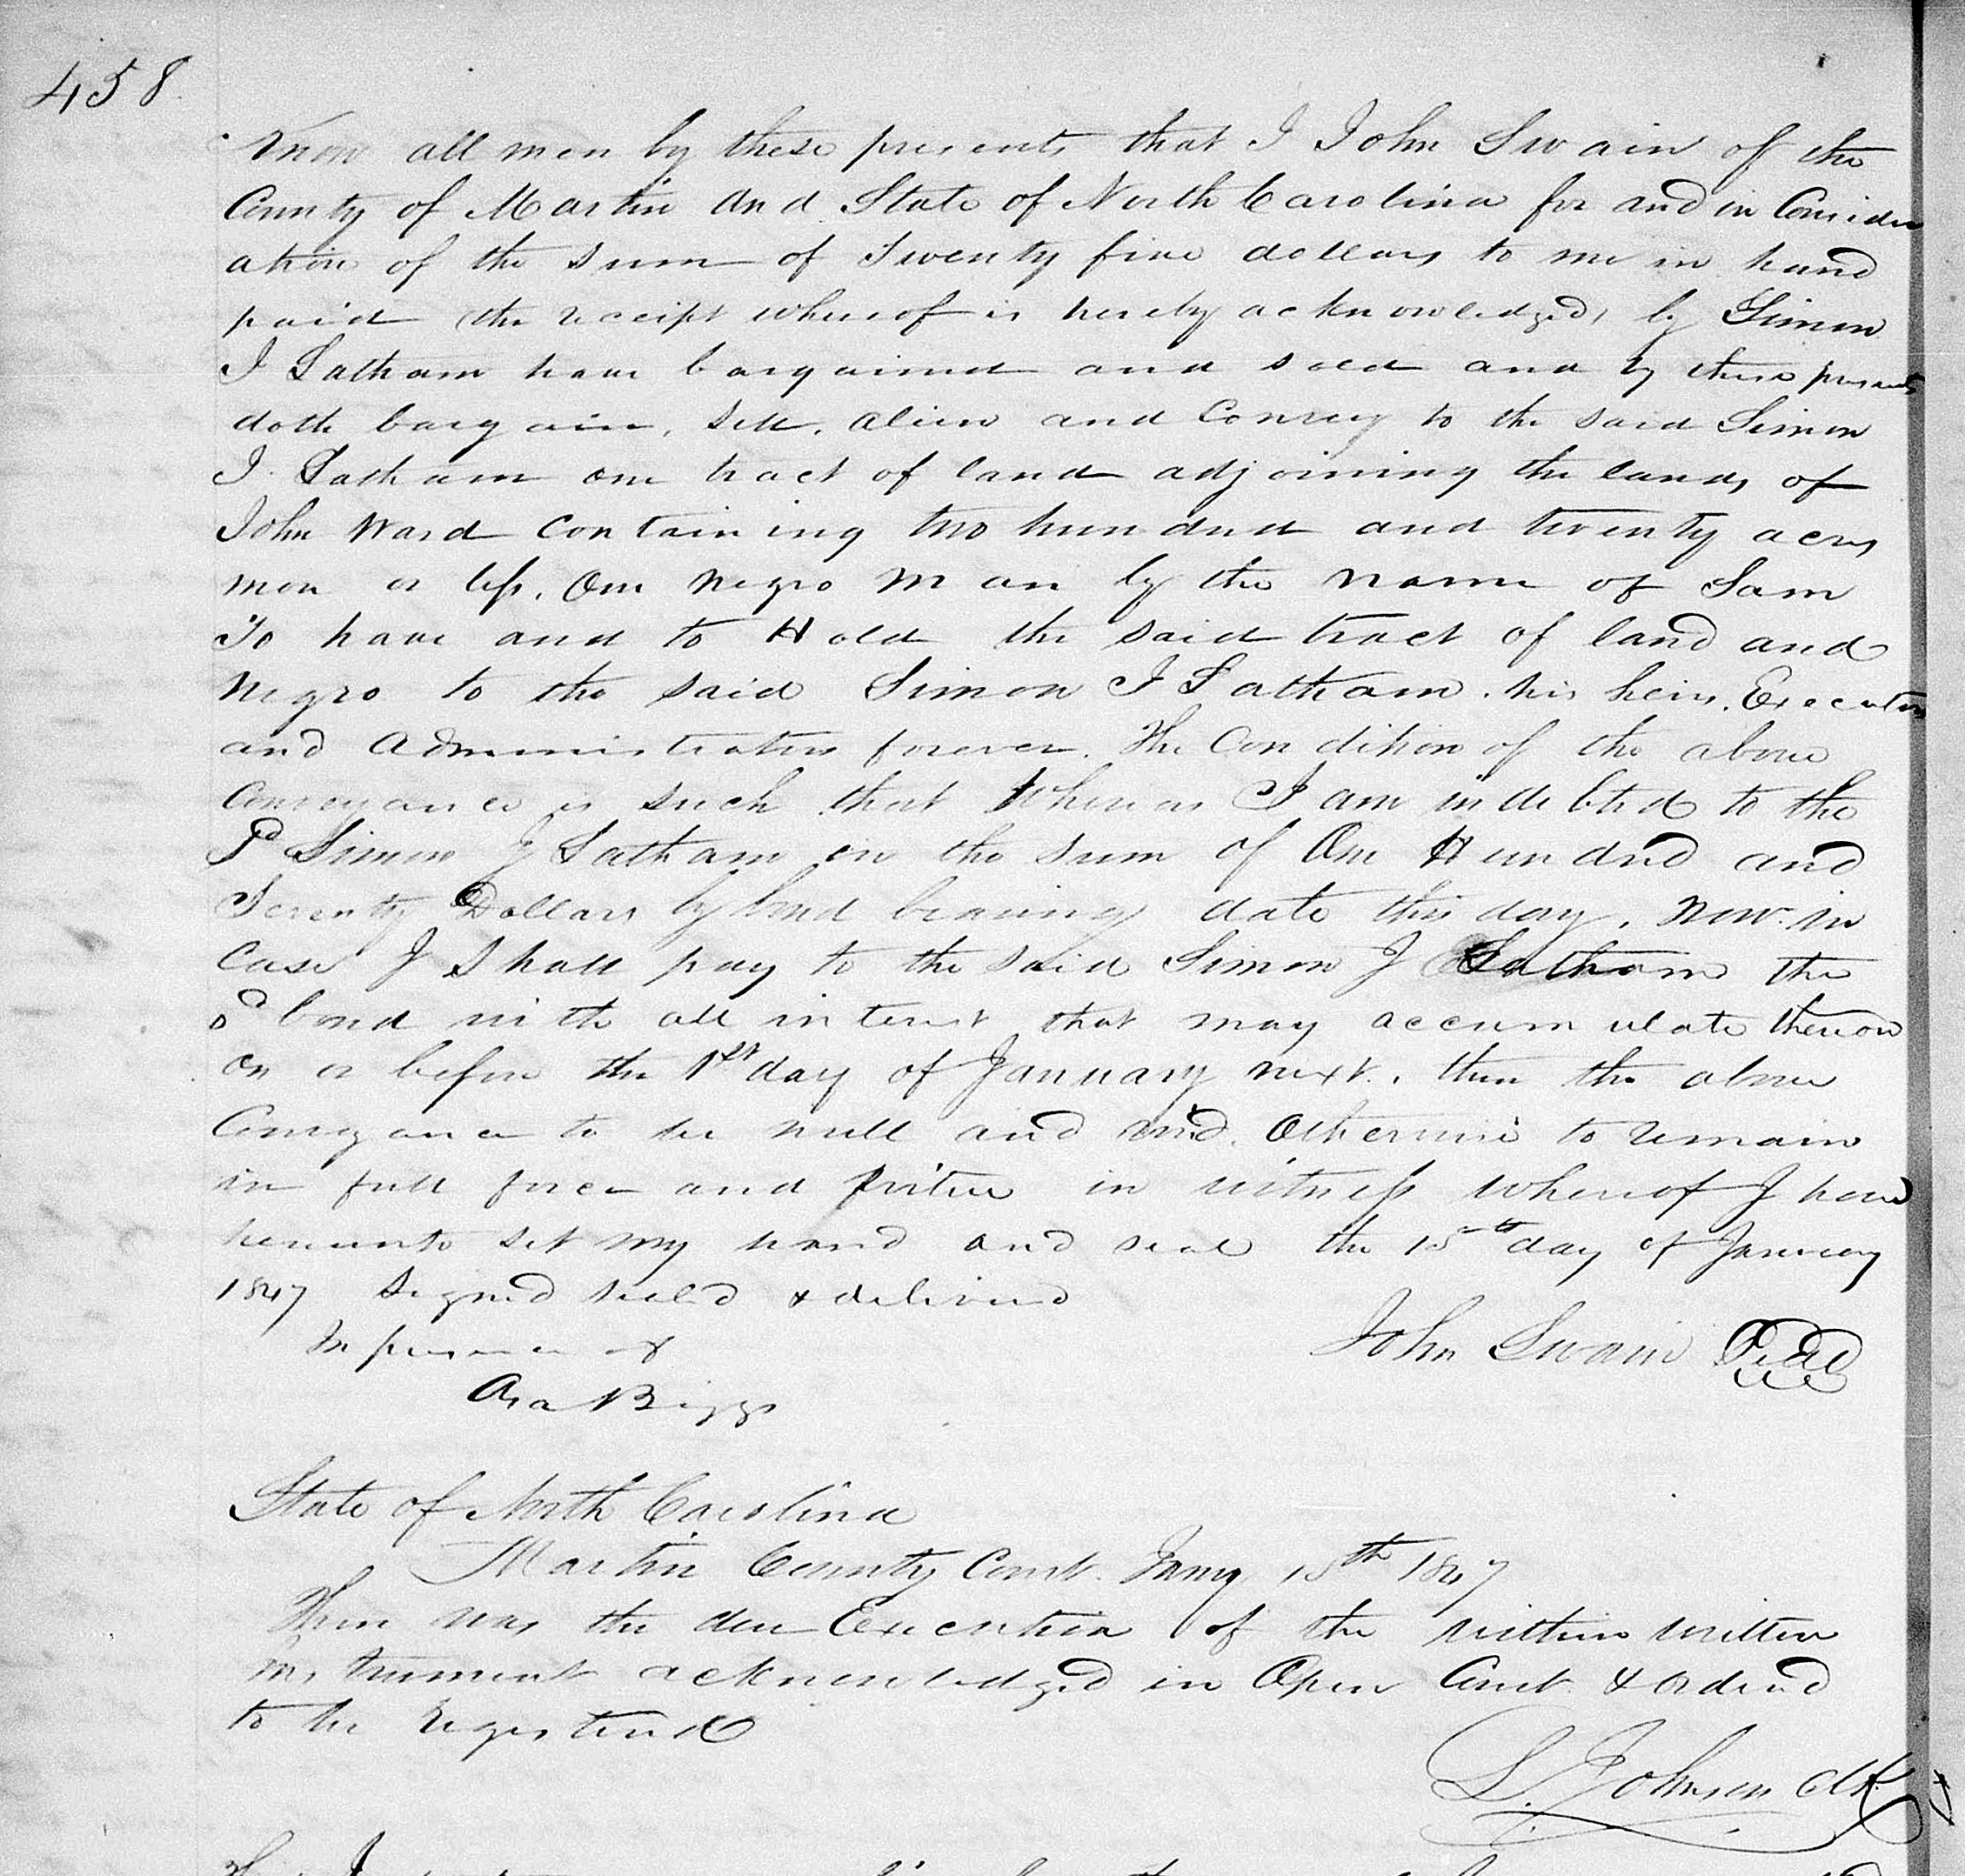 458
Know all men by these presents that I John Swain of the
County of Martin And State of North Carolina for and in Consider
ation of the sum of Twenty five dollars to me in hand
paid (the receipt whereof is hereby acknowledged) by Simon
J Latham have bargained and sold and by these presents
doth bargain, sell, alien and Convey to the said Simon
J. Latham one tract of land adjoining the lands of
John Ward Containing two hundred and twenty acres
more or less. One negro man by the name of Sam
To have and to Hold the said tract of land and
Negro to the said Simon J Latham. his heirs. Executors
and Administrators forever. The Condition of the above
Conveyance is such that Whereas I am indebted to the
sd Simon J Latham in the sum of One Hundred and
Seventy Dollars by bond bearing date this day. Now in
Case I Shall pay to the said Simon J Latham the
sd bond with all interest that may accumulate thereon
on or before the 1st day of January next. then the above
Conveyance to be null and void. Otherwise to remain
in full force and virtue in witness whereof I have
hereunto set my hand and seal the 15th day of January
1847 Signed seald & delivered
In presence of
John Swain Seal
Asa Biggs
State of North Carolina
Martin County Court. Jany 15th 1847
Then was the due Execution of the within written
instrument acknowledged in Open Court & ordered
to be registered
L. Johnson clk